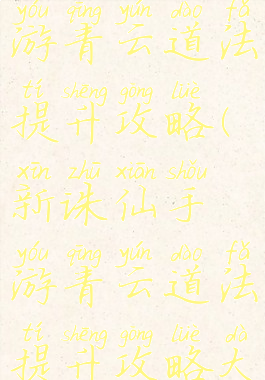 yóu qīng yún dào fǎ
游青云道法
tí shēng gōng lüè
提升攻略(
xīn zhū xiān shǒu
新诛仙手
yóu qīng yún dào fǎ
游青云道法
tí shēng gōng lüè dà
提升攻略大